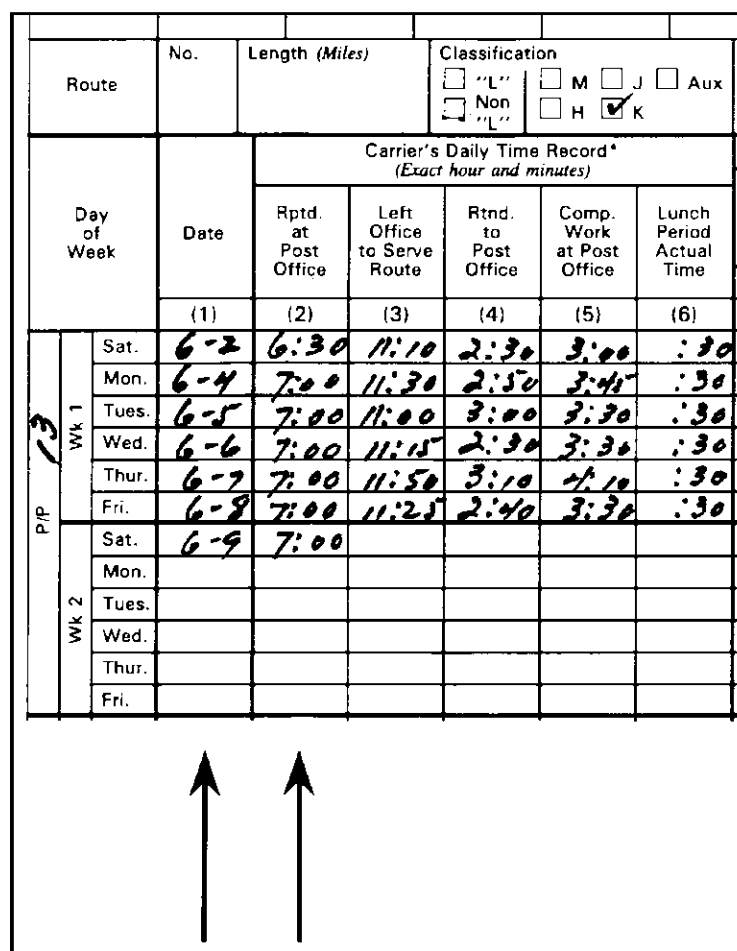 Route
No.
Length (Miles)
Classification
"L"
Non "L"
M J Aux
H K
Day of Week
Date
Carrier's Daily Time Record*
(Exact hour and minutes)
Rptd. at Post Office
Left Office to Serve Route
Rtnd. to Post Office
Comp. Work at Post Office
Lunch Period Actual Time
(1) (2) (3) (4) (5) (6)
P/P 13
Wk 1
Sat. 6-2 6:30 11:10 2:30 3:00 :30
Mon. 6-4 7:00 11:30 2:50 3:45 :30
Tues. 6-5 7:00 11:00 3:00 3:30 :30
Wed. 6-6 7:00 11:15 2:30 3:30 :30
Thur. 6-7 7:00 11:50 3:10 4:10 :30
Fri. 6-8 7:00 11:25 2:40 3:30 :30
Wk 2
Sat. 6-9 7:00
Mon.
Tues.
Wed.
Thur.
Fri.